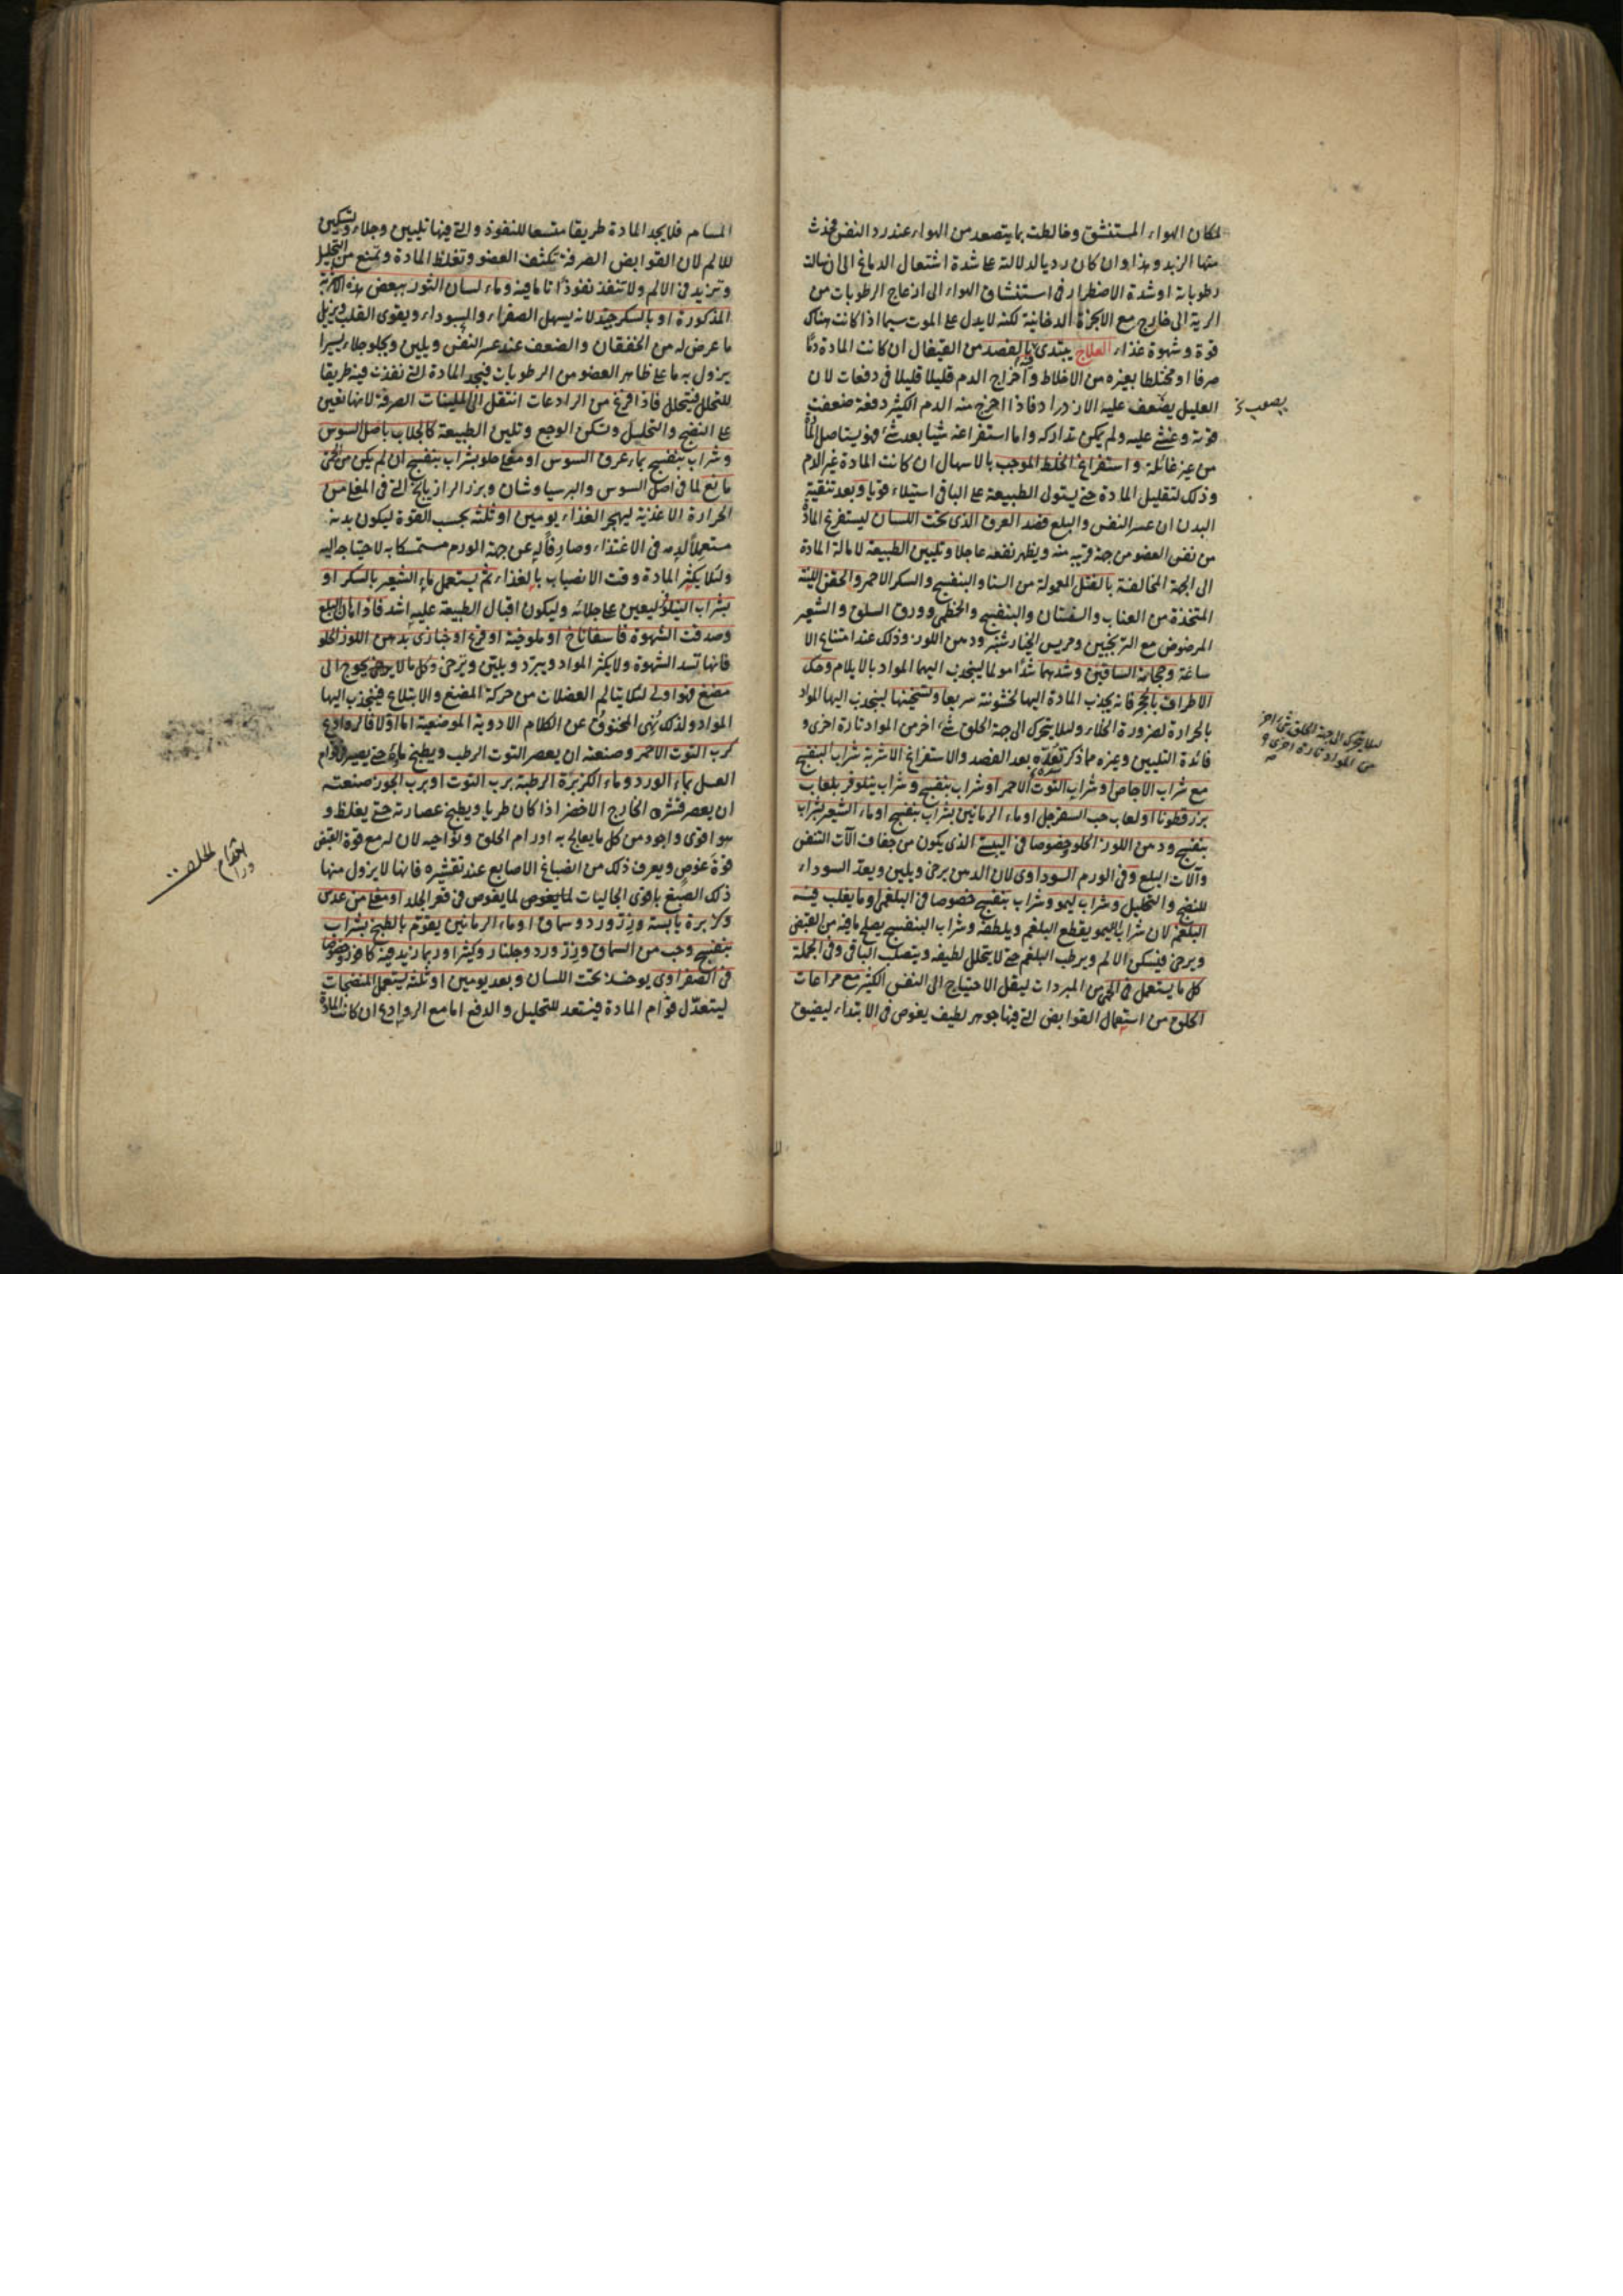 لمكان الهواء المستنشق وخالطت بما يتصعد من الهواء عند رد النفس فحدث
منها الزبد وهذا وان كان رديا لدلالة على شدة اشتعال الدماغ الى ان سالت
رطوباته او شدة الاضطرار فى استنشاق الهواء الى ازعاج الرطوبات من
الرية الى خارج مع الابخرة الدخانية لكنه لا يدل على الموت سيما اذا كانت هناك
قوة وشهوة غذاء العلاج يبتدئ بالفصد من القيفال ان كانت المادة دما
صرفا او مختلطا بغيره من الاخلاط واخراج الدم قليلا قليلا فى دفعات لان
العليل يضعف عليه الازدراد فاذا اخرج منه الدم الكثير دفعة ضعفت
يصعب
قوته وغشى عليه ولم يمكن تداركه واما استفراغه شيا بعد شئ فهو يستاصل
من غير غائلة واستفراغ الخلط الموجب بالاسهال ان كانت المادة غير الدم
وذلك لتقليل المادة حتى يستولى الطبيعة على الباقى استيلاء قويا وبعد تنقية
البدن ان عسر النفس والبلع فصد العرق الذى تحت اللسان ليستفرغ المادة
من نفس العضو من جهة قريبة منه ويظهر نفعه عاجلا وتليين الطبيعة لامالة المادة
الى الجهة المخالفة بالفتل المعمولة من السنا والبنفسج والسكر الاحمر والحقن اللينة
المتخذة من العناب والسفستان والبنفسج والخطمى وورق السلق والشعير
المرضوض مع الترنجبين ومريس الخيارشنبر ودهن اللوز وذلك عند امتناع الا
ساغة وحجامة الساقين وشدهما شدا مولما لينجذب اليهما المواد بالايلام وحك
الاطراف بالحجر فانه يجذب المادة اليها لخشونته سريعا وتسخينها لينجذب اليها المواد
بالحرارة لضرورة الخلاء وليلا يتحرك الى جهة الحلق شئ اخر من المواد تارة اخرى و
ليلا يتحرك الى جهة الحلق شئ اخر
من المواد تارة اخرى
فائدة التليين وغيره مما ذكر بعد الفصد والاستفراغ الاشربة شراب البنفسج
مع شراب الاجاص او شراب التوت الاحمر او شراب بنفسج وشراب نيلوفر بلعاب
بزرقطونا او لعاب حب السفرجل او ماء الرمانين بشراب بنفسج او ماء الشعير بشراب
بنفسج ودهن اللوز الحلو خصوصا فى اليبسى الذى يكون من جفاف الات التنفس
وآلات البلع وفى الورم السوداوى لان الدهن يرخى ويلين ويعد السوداء
للنضج والتحليل وشراب ليمو وشراب بنفسج خصوصا فى البلغمى او ما يغلب فيه
البلغم لان شراب الليمو يقطع البلغم ويلطفه وشراب البنفسج يصلح ما فيه من القبض
ويرخى فيسكن الالم ويرطب البلغم حتى لا يتحلل لطيفه ويتصلب الباقى وفى الجملة
كل ما يستعمل فى الحمى من المبردات ليقل الاحتياج الى النفس الكثير مع مراعات
الحلق من استعمال القوابض التى فيها جوهر لطيف يغوص فى الابتداء ليضيق
المسام فلا يجد المادة طريقا متسعا للنفوذ والتى فيها تليين وجلاء وتسكين
للالم لان القوابض الصرفة تكثف العضو وتغلظ المادة وتمنع من التحليل
وتزيد فى الالم ولا تنفذ نفوذا تاما فيه وماء لسان الثور ببعض هذه الاشربة
المذكورة او بالسكر جيد لانه يسهل الصفراء والسوداء ويقوى القلب ويزيل
ما عرض له من الخفقان والضعف عند عسر النفس ويلين ويجلو جلاء يسيرا
يزول به ما على ظاهر العضو من الرطوبات فيجد المادة التى نفذت فيه طريقا
للتحلل فيتحلل فاذا فرغ من الرادعات انتقل الى الملينات الصرفة لانها تعين
على النضج والتحليل وتسكن الوجع وتلين الطبيعة كالجلاب باصل السوس
وشراب بنفسج بماء عرق السوس او مغلى حلو بشراب بنفسج ان لم يكن من الحمى
مانع لما فى اصل السوس والبرسياوشان وبزر الرازيانج التى فى المغلى من
الحرارة الاغذية ليهجر الغذاء يومين او ثلثة بحسب القوة ليكون بدنه
مستعملا لدمه فى الاغتذاء وصارفا له عن جهة الورم مستمسكا به لاحتياجه اليه
ولئلا يكثر المادة وقت الانصباب بالغذاء ثم يستعمل ماء الشعير بالسكر او
بشراب النيلوفر ليعين على جلائه وليكون اقبال الطبيعة عليه اشد فاذا امكن البلع
وصدقت الشهوة فاسفاناخ او ملوخية او قرع او خبازى بدهن اللوز الحلو
فانها تسد الشهوة ولا يكثر المواد ويبرد ويلين ويرخى وكل ما لا يحوج الى
مضغ فهو اولى لئلا يتالم العضلات من حركة المضغ والابتلاع فينجذب اليها
المواد ولذلك نهى المخنوق عن الكلام الادوية الموضعية اما اولا فالروادع
كرب التوت الاحمر وصنعته ان يعصر التوت الرطب ويطبخ ماءه حتى يصير فى قوام
العسل بماء الورد وماء الكزبرة الرطبة برب التوت او برب الجوز صنعته
ان يعصر قشره الخارج الاخضر اذا كان طريا ويطبخ عصارته حتى يغلظ و
هو اقوى واجود من كل ما يعالج به اورام الحلق ونواحيه لان له مع قوة القبض
اورام الحلق
قوة غوص ويعرف ذلك من انصباغ الاصابع عند تقشيره فانها لا يزول منها
ذلك الصبغ باقوى الجاليات لما يغوص فى قعر الجلد او مغلى من عدس
وكزبرة يابسة وزر ورد وسماق او ماء الرمانين يقوم بالطبخ بشراب
بنفسج وحب من السماق وزر ورد وجلنار وكثيرا وربما زيد فيه كافور وخصوصا
فى الصفراوى يوخذ تحت اللسان وبعد يومين او ثلثة يستعمل المنضجات
ليتعدل قوام المادة فيستعد للتحليل والدفع اما مع الروادع ان كانت المادة